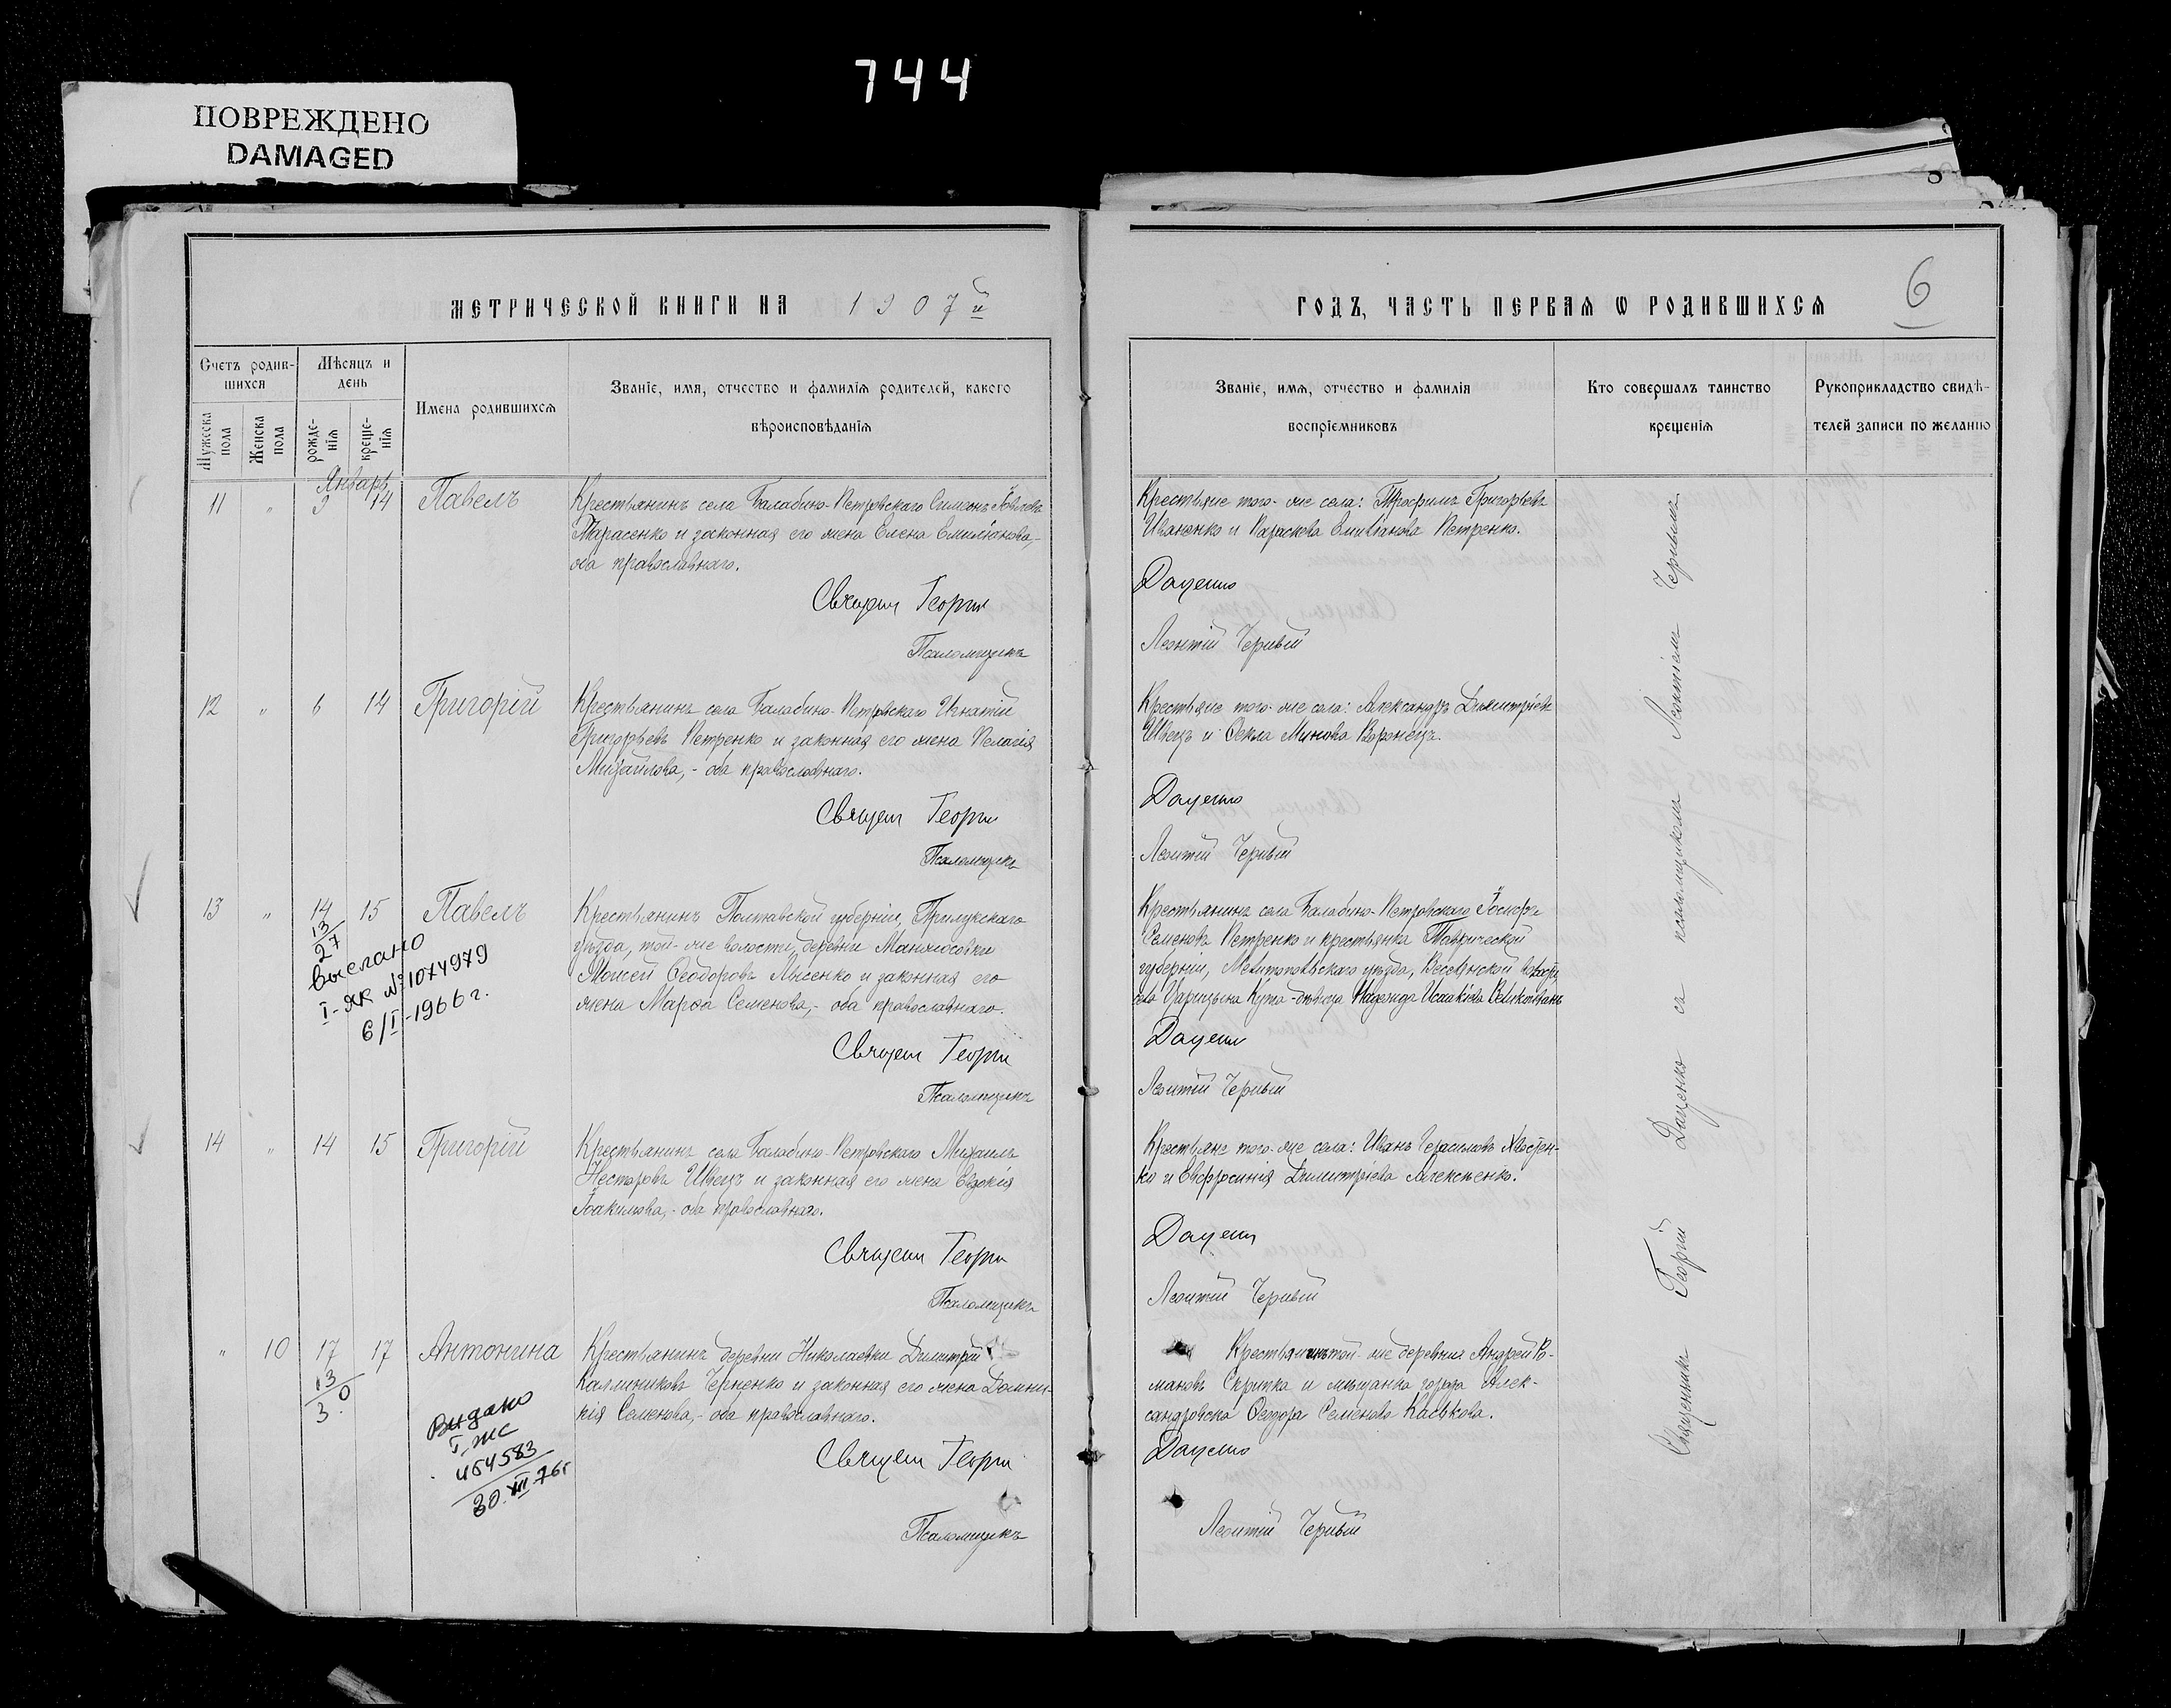 744
ПОВРЕЖДЕНО
DAMAGED
МЕТРИЧЕСКОЙ КНИГИ НА 1907й
ГОДЪ, ЧАСТЬ ПЕРВАЯ Ѡ РОДИВШИХСЯ
6
Счетъ родив-
шихся
Мѣсяцъ и
день
Мужеска
пола
Женска
пола
рожде-
нія
креще-
нія
Имена родившихся
Званіе, имя, отчество и фамилія родителей, какого
вѣроисповѣданія
Званіе, имя, отчество и фамилія
воспріемниковъ
Кто совершалъ таинство
крещенія
Рукоприкладство свидѣ-
телей записи по желанію
Январь
11 " 9 14 Павелъ
Крестьянинъ села Балабино-Петровскаго Симеонъ
Тарасенко и законная его жена Елена Емиліанова,-
оба православнаго.
Священ Георгій
Псаломщикъ
Крестьяне того-же села: Трофимъ Григорьевъ
Иваненко и Параскева Емиліанова Петренко.
Даценко
Леонтій Черный
12 " 6 14 Григорій
Крестьянинъ села Балабино-Петровскаго Игнатій
Григорьевъ Петренко и законная его жена Пелагія
Михайлова,- оба православнаго.
Священ Георгій
Псаломщикъ
Крестьяне того-же села: Александръ Димитріевъ
Швецъ и Ѳекла Минова Воронецъ.
Даценко
Леонтій Черный
13 " 14 15 Павелъ
13
27
выслано
I-ЯК №1074979
6/I-1966г.
Крестьянинъ Полтавской губерніи, Прилукскаго
уѣзда, той-же волости, деревни Манжосовки
Моисей Ѳеодоровъ Лысенко и законная его
жена Марѳа Семенова,- оба православнаго.
Священ Георгій
Псаломщикъ
Крестьянинъ села Балабино-Петровскаго Іосифъ
Семеновъ Петренко и крестьянка Таврической
губерніи, Мелитопольскаго уѣзда, Веселянской волости,
села Царицына Кута-дѣвица Надежда Исаакіева
Даценко
Леонтій Черный
14 " 14 15 Григорій
Крестьянинъ села Балабино-Петровскаго Михаилъ
Несторовъ Швецъ и законная его жена Евдокія
Іоакимова,- оба православнаго.
Священ Георгій
Псаломщикъ
Крестьяне того-же села: Иванъ Герасимовъ Хвостен-
ко и Евфросинія Димитріева Алексѣенко.
Даценко
Леонтій Черный
" 10 17 17 Антонина
13
30
Видано
I-ЖС
454583
30.XII.76г
Крестьянинъ деревни Николаевки Димитрій
Каллиниковъ Черненко и законная его жена Домни-
кія Семенова,- оба православнаго.
Священ Георгій
Псаломщикъ
Крестьянинъ той-же деревни Андрей Ро-
мановъ Скрипка и мѣщанка города Алек-
сандровска Ѳеодора Семенова Каськова.
Даценко
Леонтій Черный
Священникъ Георгій Даценко съ псаломщикомъ Леонтіемъ Чернымъ